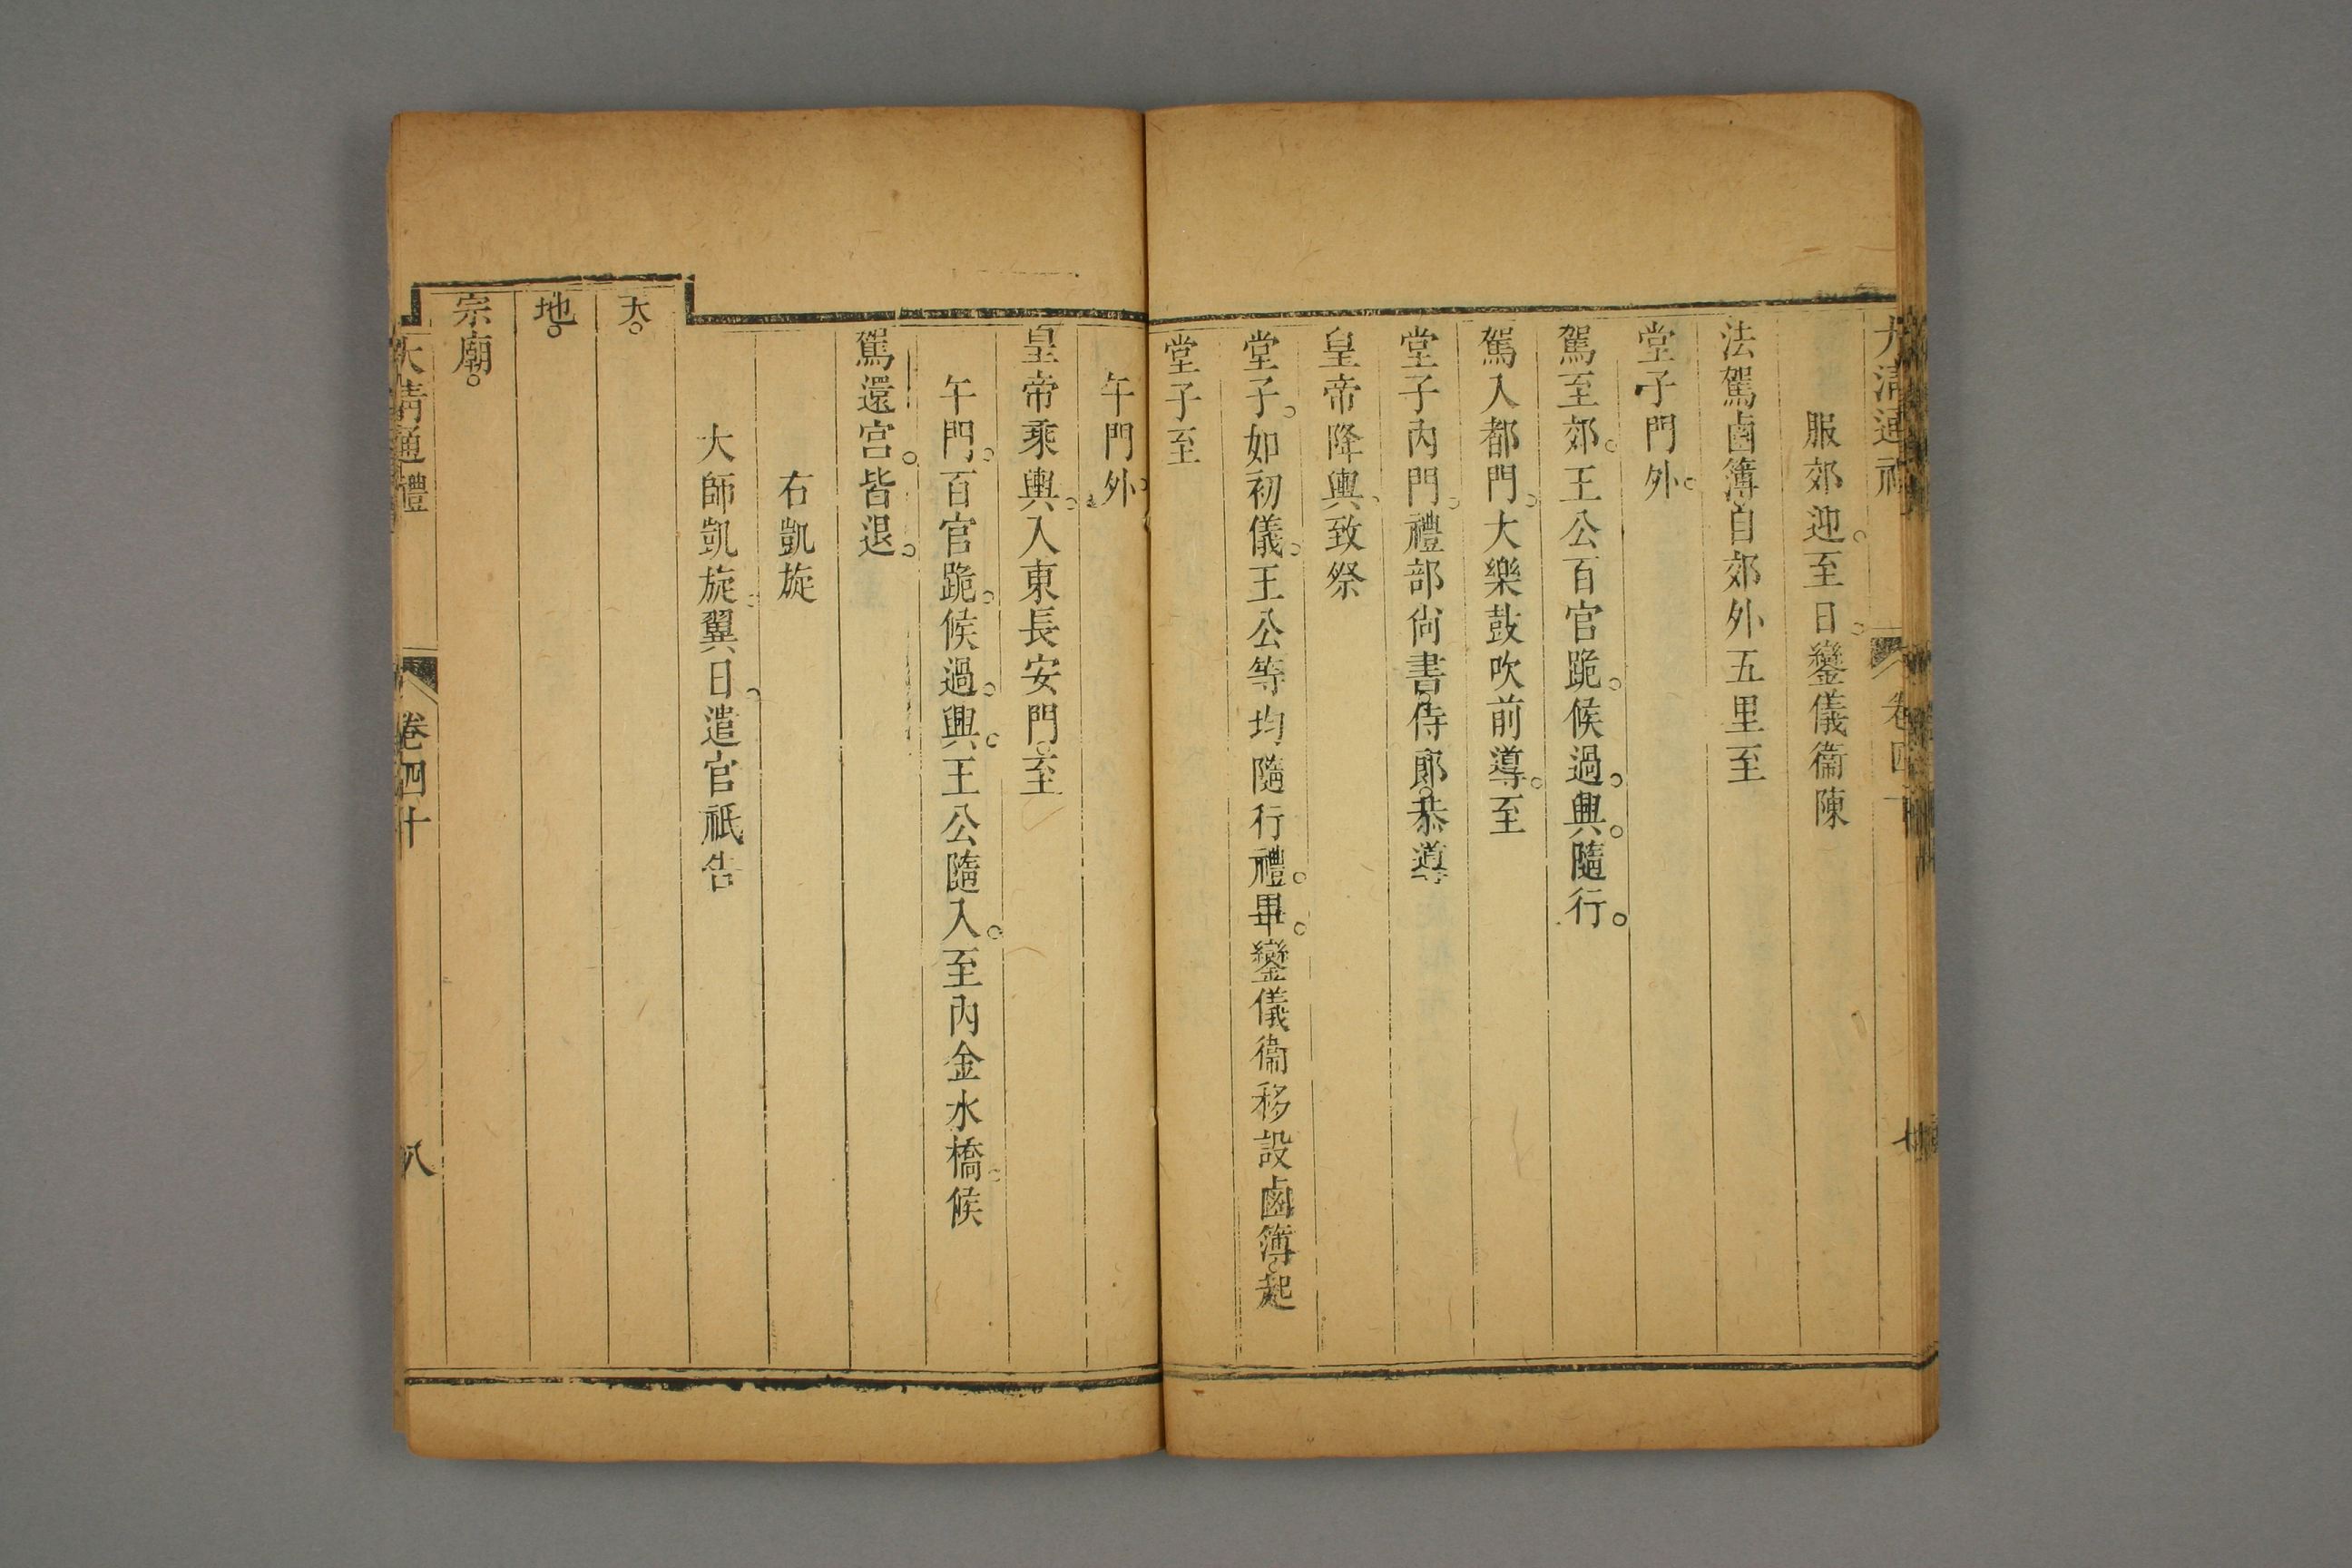 大清通禮 卷四十 七
服郊迎。至日。鑾儀衞陳
法駕鹵簿。自郊外五里至
堂子門外。
駕至郊。王公百官跪。候過。興。隨行。
駕入都門。大樂鼓吹前導。至
堂子內門。禮部尚書。侍郎。恭導
皇帝降輿。致祭
堂子。如初儀。王公等均隨行禮。畢。鑾儀衞移設鹵簿。起
堂子至
午門外。
皇帝乘輿。入東長安門。至
午門。百官跪。候過。興。王公隨入。至內金水橋。候
駕還宮。皆退。
右凱旋
大師凱旋。翼日。遣官祇告
天。
地。
宗廟。
大清通禮 卷四十 八